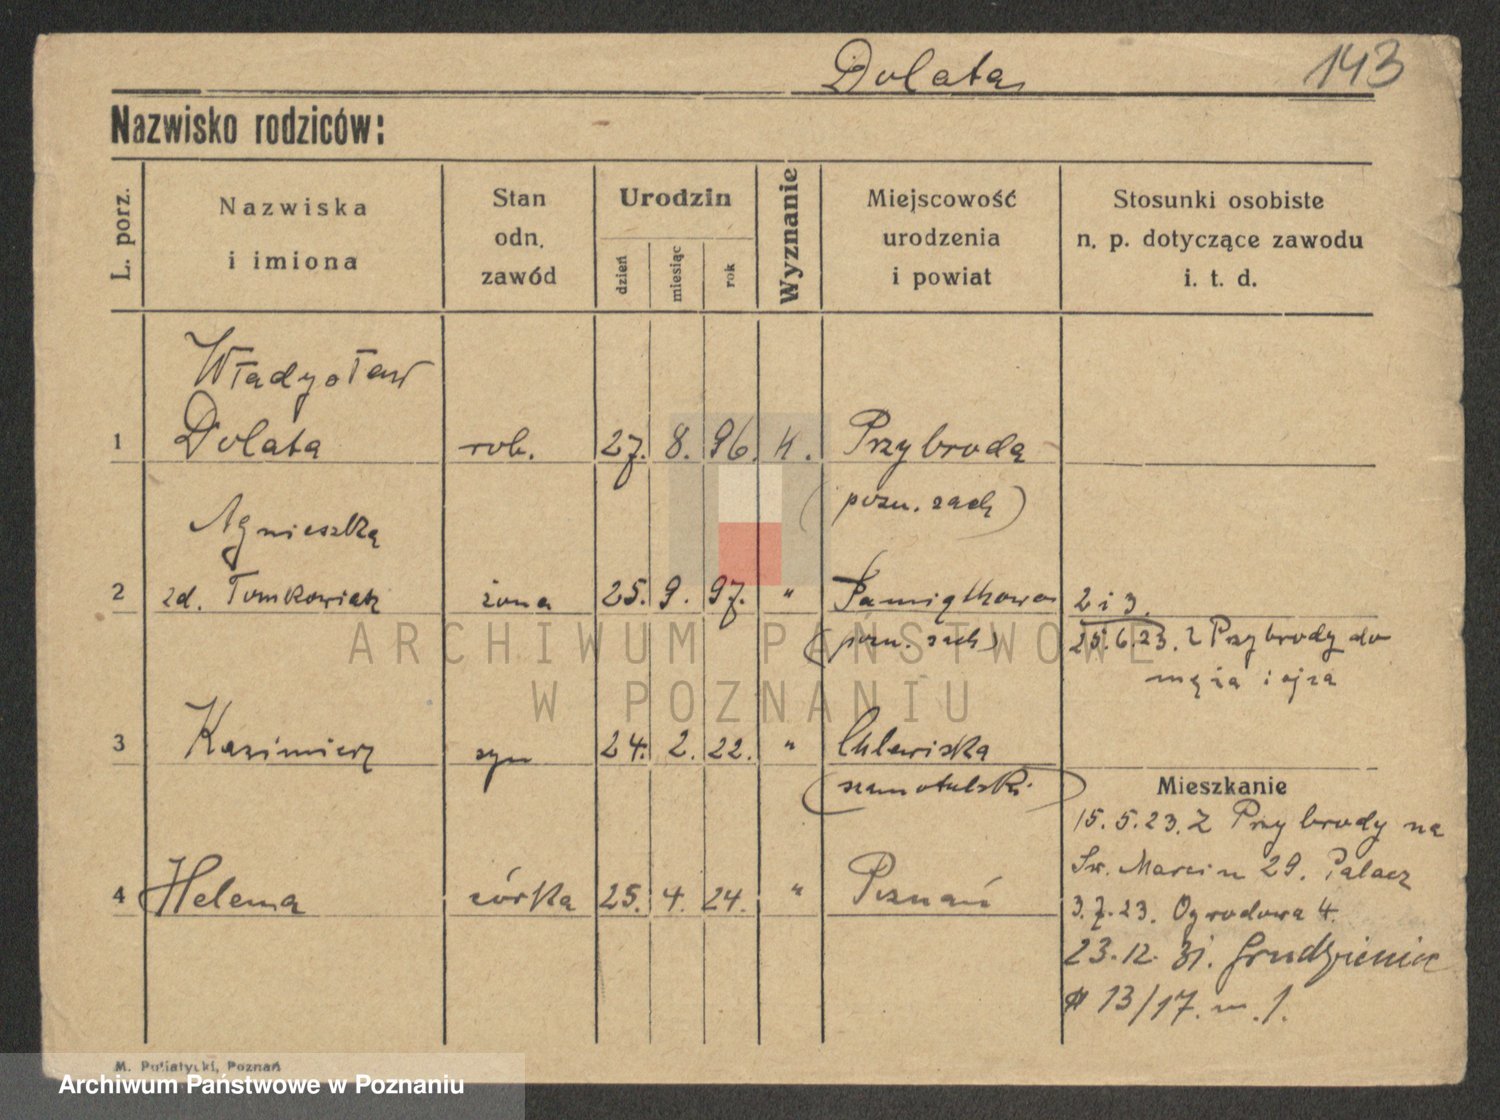 Dolata 143
Nazwisko rodziców:
L. porz. Nazwiska i imiona Stan odn. zawód Urodzin dzień miesiąc rok Wyznanie Miejscowość urodzenia i powiat Stosunki osobiste n. p. dotyczące zawodu i. t. d.
Władysław
1 Dolata rob. 27. 8. 96. k. Przybroda
(pozn. zach)
Agnieszka
2 zd. Tomkowiak żona 25. 9. 97. " Pamiątkowo 2 i 3.
(pozn. zach) 25.6.23. Z Przybrody do
męża i ojca
3 Kazimierz syn 24. 2. 22. " Chlewiska
(szamotulski) Mieszkanie
15.5.23. Z Przybrody na
Św. Marcin 29. Palacz
4 Helena córka 25. 4. 24. " Poznań
3.7.23. Ogrodowa 4.
23.12.31. Grudzieniec
13/17. m. 1.
M. Putiatycki, Poznań
ARCHIWUM PAŃSTWOWE
W POZNANIU
Archiwum Państwowe w Poznaniu